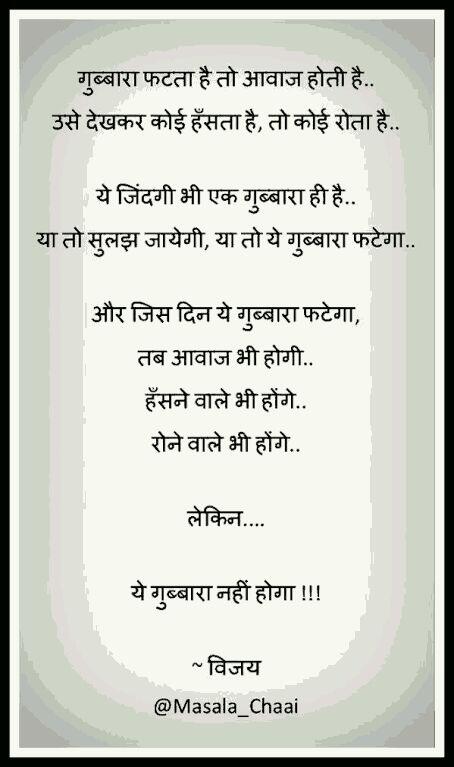 गुब्बारा फटता है तो आवाज होती है..
उसे देखकर कोई हँसता है, तो कोई रोता है..
ये जिंदगी भी एक गुब्बारा ही है..
या तो सुलझ जायेगी, या तो ये गुब्बारा फटेगा..
और जिस दिन ये गुब्बारा फटेगा,
तब आवाज भी होगी..
हँसने वाले भी होंगे..
रोने वाले भी होंगे..
लेकिन....
ये गुब्बारा नहीं होगा !!!
~ विजय
@Masala_Chaai